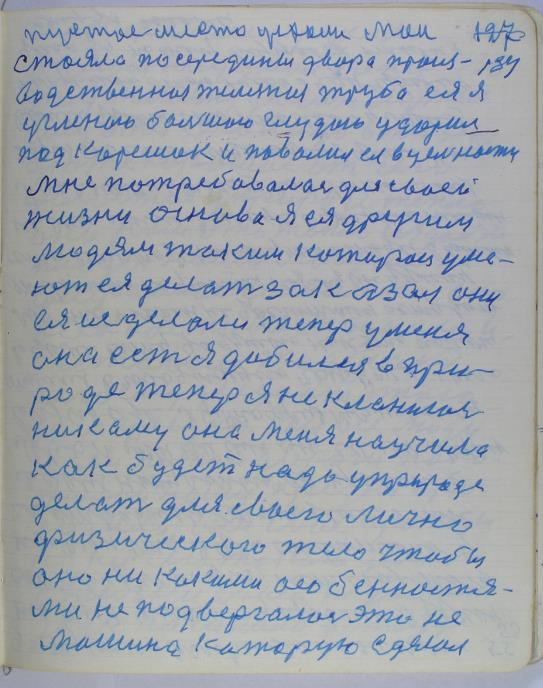 пустое место уноши мои 127
стояла посерединѣ двора произ-
водственная тяжелая труба ея я
угленою большою глудою ударил
под корешок и повалил ея в цельности
мне потребовалас для своей
жизни основа я ея другим
людям таким которой уме-
ют ея делат заказал они
ея исделали тепер у меня
она ест я добился в при-
роде тепер я не кланяюся
никаму она меня научила
как будет надо уприроде
делат для своего лично
физического тело чтобы
оно ни какими особенностя-
ми не подвергалос это не
машина которую сделал